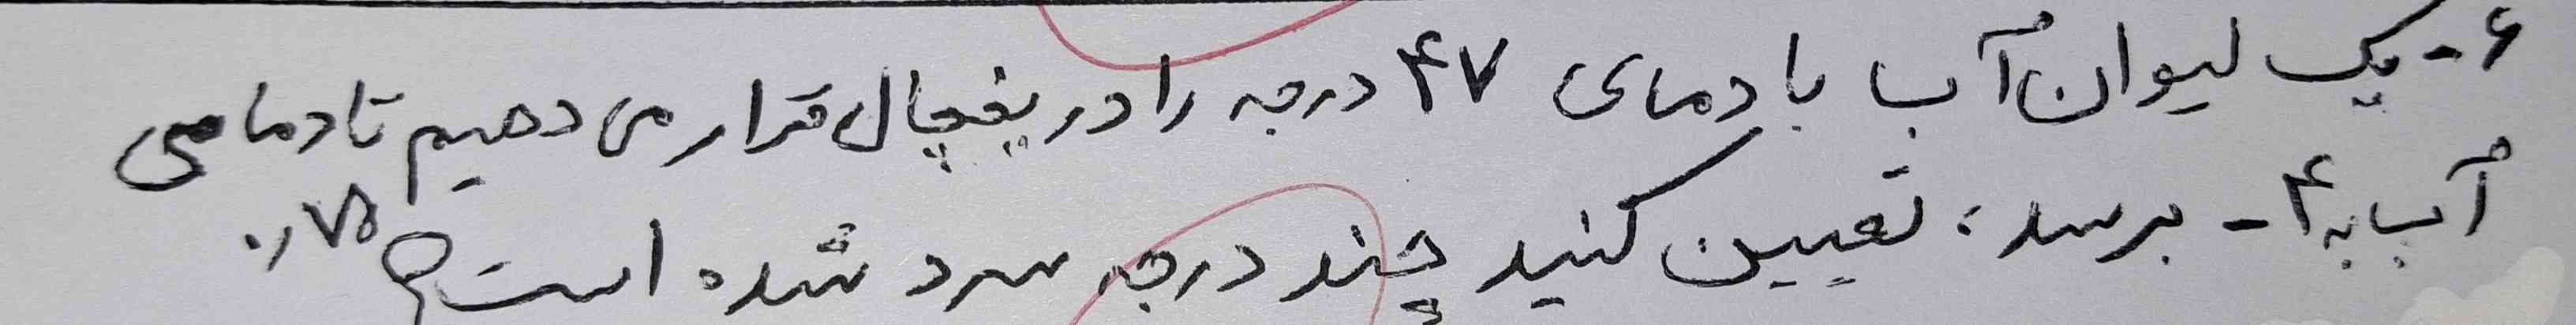 ۶- یک لیوان آب با دمای ۴۷ درجه را در یخچال قرار می دهیم تا دمای
آب به ۴- برسد، تعیین کنید چند درجه سرد شده است؟ ۰٫۷۵